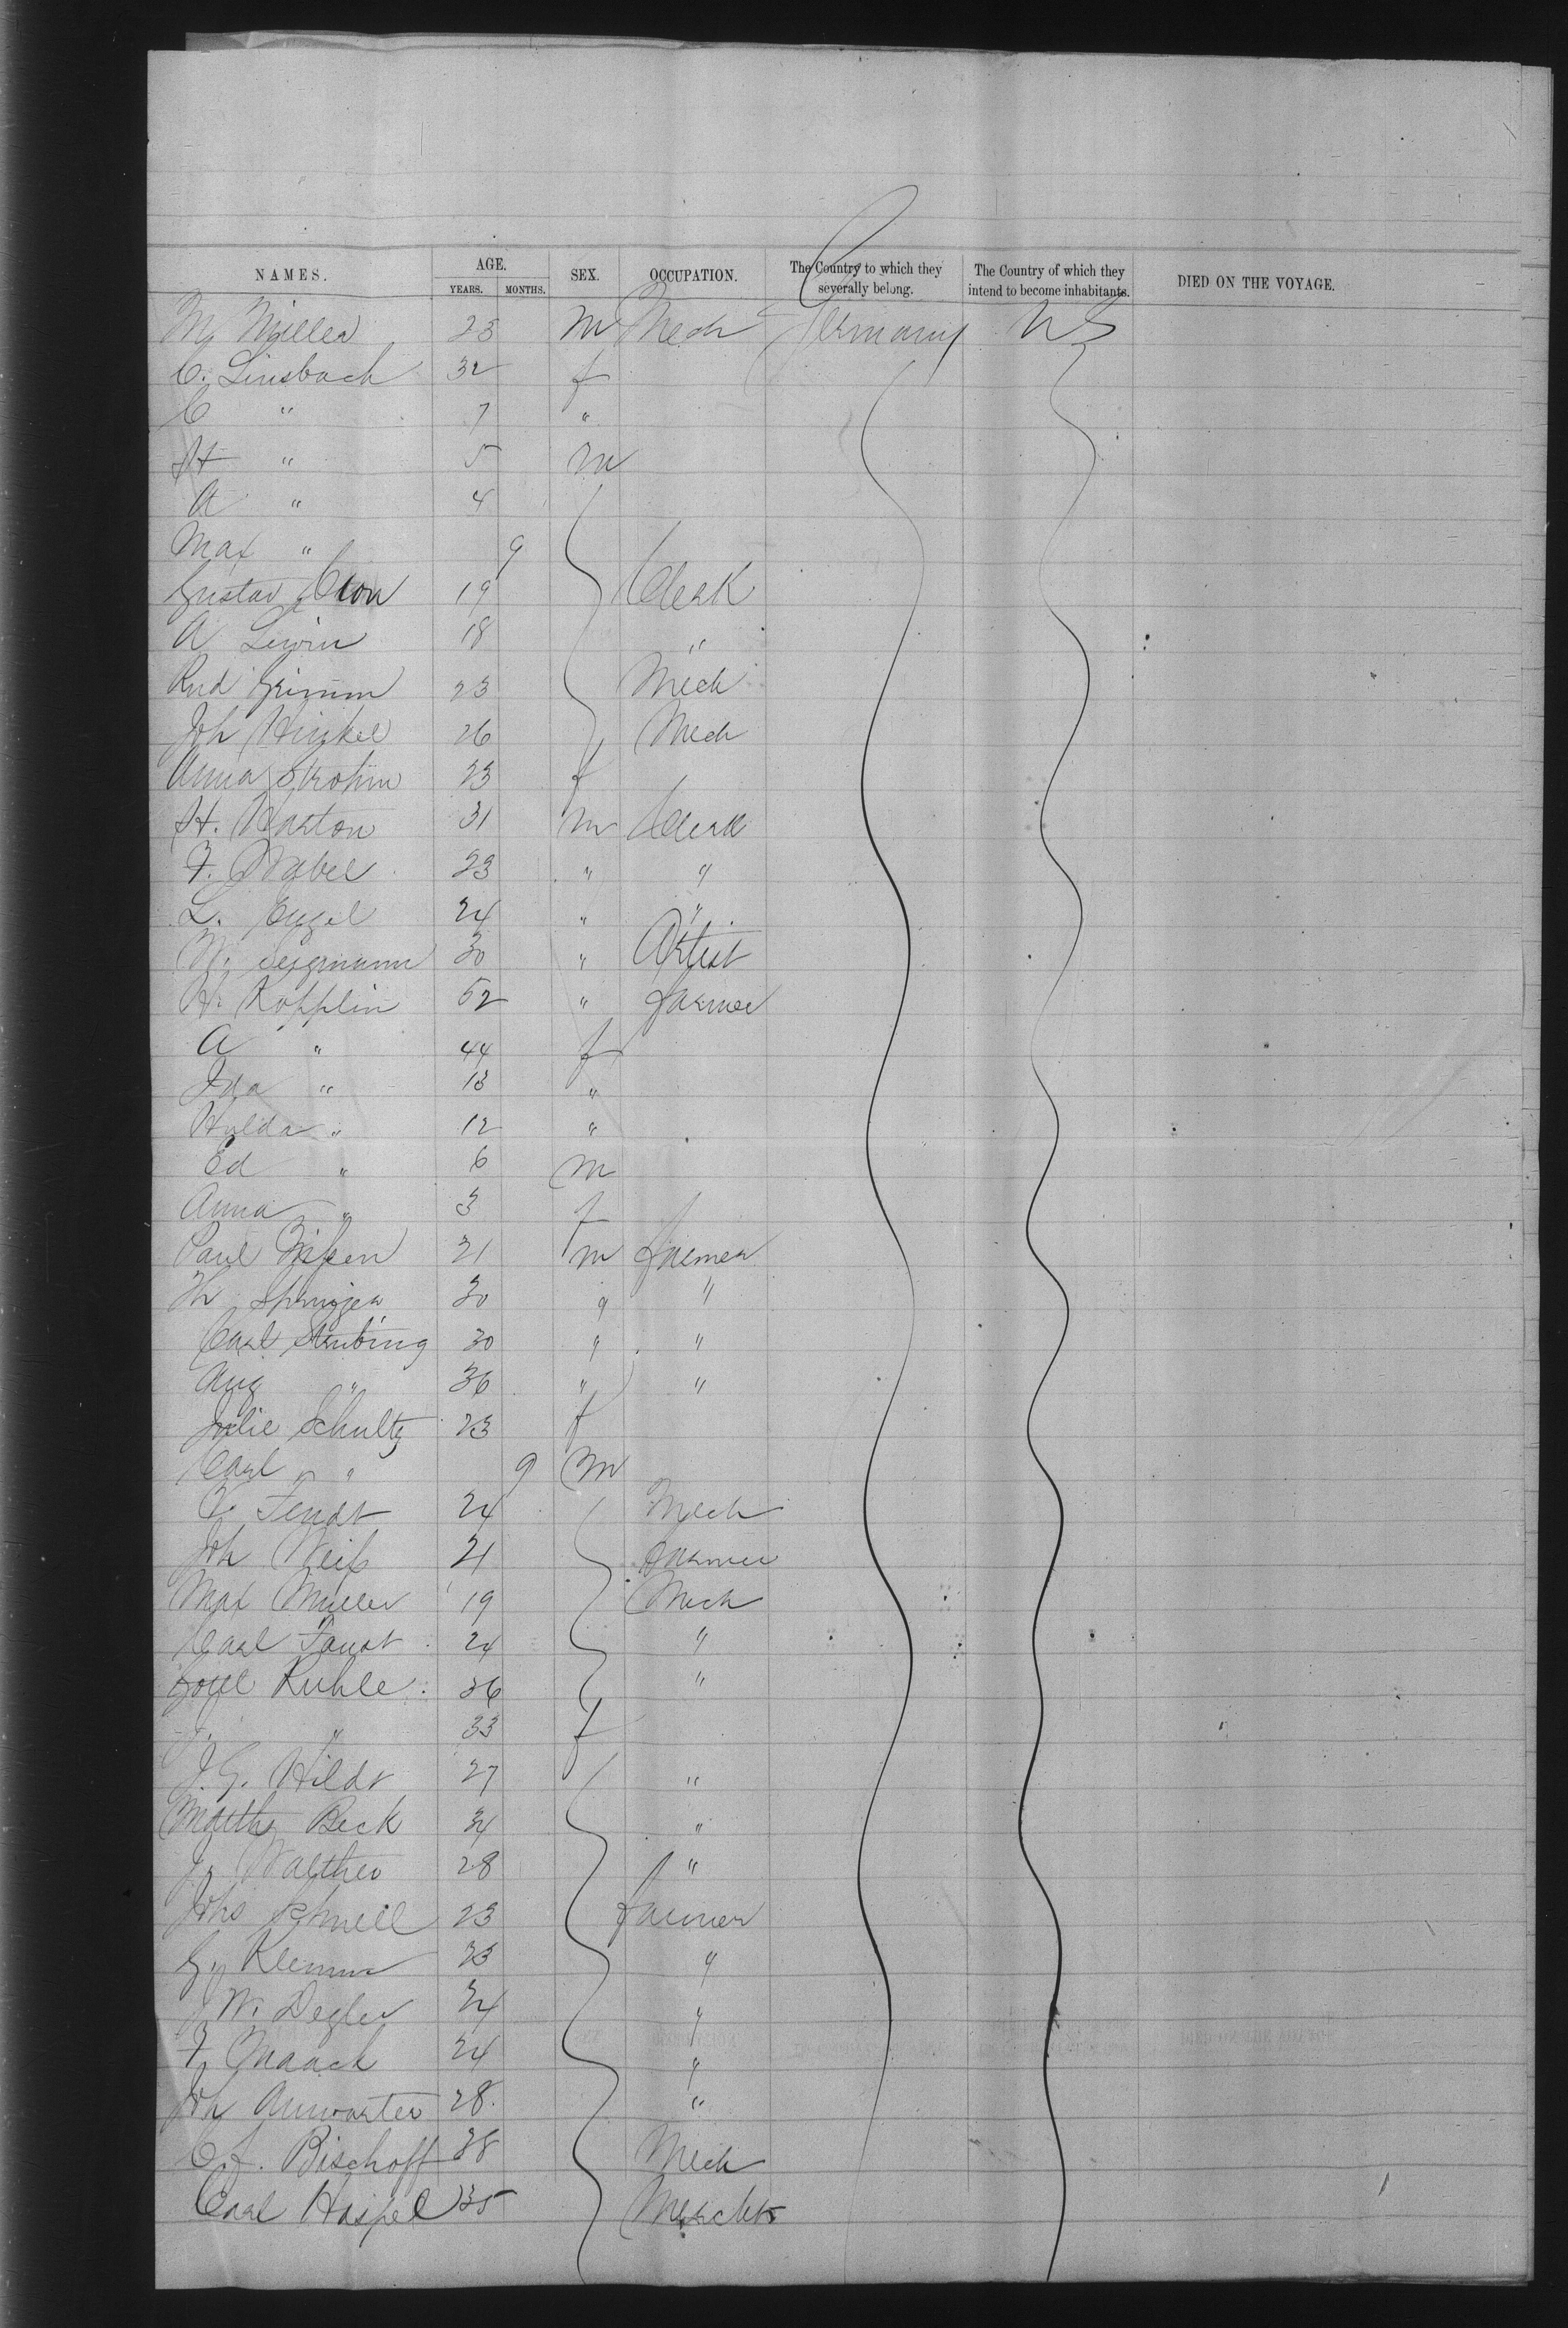 NAMES. AGE. SEX. OCCUPATION. The Country to which they severally belong. The Country of which they intend to become inhabitants. DIED ON THE VOYAGE.
YEARS. MONTHS.
M. Müller 25 m Mech Germany US
C. Linsbach 32 f
C " 7 "
H " 5 m
A " 4
Max " 9
Gustav 19 Clerk
A Lewin 18 "
Rud Grimm 23 Mech
Joh Hinkel 26 Mech
Anna Strohm 23 f
H. Warton 31 m Clerk
F. Wabel 23 " "
L. Engel 24 " "
30 " Artist
H. Kopplin 52 " Farmer
A " 44 f
Ida " 13 "
Hulda " 12 "
Ed " 6 m
Anna " 3 f
Paul 21 m Farmer
Th Springer 30 " "
Carl Strubing 30 " "
Aug " 36 " "
Julie Schultz 23 f
Carl " 9 m
Fendt 24 Mech
Joh Weiß 21 Farmer
Max Müller 19 Mech
Carl Faust 24 "
Ruhle 36 "
" 33 f
J. G. Hildt 27 "
Maths Beck 34 "
J. Walther 28 "
Johs Schnell 23 Farmer
G. Klemm 23 "
J W. Degler 24 "
F. Maack 24 "
Joh Anwarter 28. "
C. F. Bischoff 38 Mech
Carl Haspel 35 Mercht